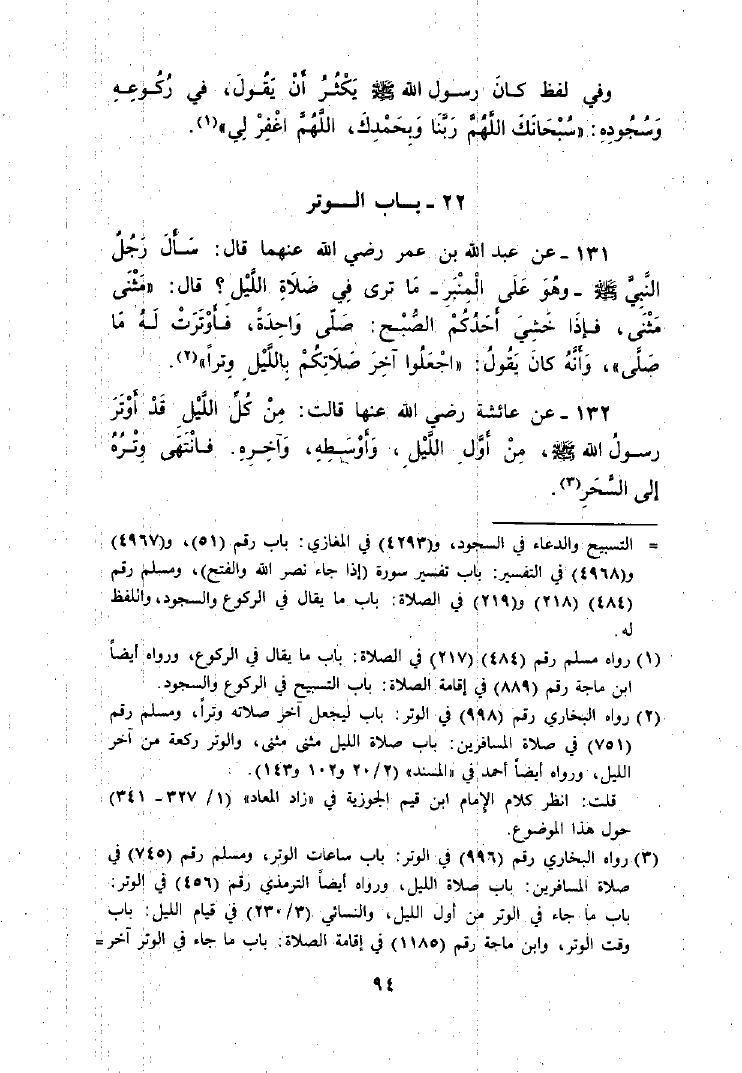 وفي لفظ كـانَ رسـول الله ﷺ يَكْثُـرُ أَنْ يَقُـولَ، في رُكُـوعِـهِ
وَسُجُودِهِ: «سُبْحَانَكَ اللَّهُمَّ رَبَّنَا وَبِحَمْدِكَ، اللَّهُمَّ اغْفِرْ لِي»(١).
٢٢ - بــاب الــوتر
١٣١ - عن عبد الله بن عمر رضي الله عنهما قال: سَـأَلَ رَجُلٌ
النَّبِيَّ ﷺ - وهُوَ عَلَى الْمِنْبَرِ - مَا ترى فِي صَلَاةِ اللَّيْلِ؟ قال: «مَثْنَى
مَثْنَى، فـإذَا خَشِيَ أَحَدُكُمْ الصُّبْـحَ: صَلَّى وَاحِدَةً، فـأَوْتَرَتْ لَـهُ مَا
صَلَّى»، وَأَنَّهُ كانَ يَقُولُ: «اجْعَلُوا آخِرَ صَلَاتِكُمْ بِاللَّيْلِ وِتراً»(٢).
١٣٢ - عن عائشة رضي الله عنها قالت: مِنْ كُلِّ اللَّيْلِ قَدْ أَوْتَرَ
رسـولُ الله ﷺ، مِنْ أَوَّلِ اللَّيْلِ، وَأَوْسَطِهِ، وَآخِـرِهِ. فـانْتَهَى وِتْـرُهُ
إلى السَّحَرِ(٣).
= التسبيح والدعاء في السجود، و(٤٢٩٣) في المغازي: باب رقم (٥١)، و(٤٩٦٧)
و(٤٩٦٨) في التفسير: باب تفسير سورة (إذا جاء نصر الله والفتح)، ومسلم رقم
(٤٨٤) (٢١٨) و(٢١٩) في الصلاة: باب ما يقال في الركوع والسجود، واللفظ
له.
(١) رواه مسلم رقم (٤٨٤) (٢١٧) في الصلاة: باب ما يقال في الركوع، ورواه أيضاً
ابن ماجة رقم (٨٨٩) في إقامة الصلاة: باب التسبيح في الركوع والسجود.
(٢) رواه البخاري رقم (٩٩٨) في الوتر: باب ليجعل آخر صلاته وتراً، ومسلم رقم
(٧٥١) في صلاة المسافرين: باب صلاة الليل مثنى مثنى، والوتر ركعة من آخر
الليل، ورواه أيضاً أحمد في «المسند» (٢٠/٢ و١٠٢ و١٤٣).
قلت: انظر كلام الإمام ابن قيم الجوزية في «زاد المعاد» (١/ ٣٢٧ - ٣٤١)
حول هذا الموضوع.
(٣) رواه البخاري رقم (٩٩٦) في الوتر: باب ساعات الوتر، ومسلم رقم (٧٤٥) في
صلاة المسافرين: باب صلاة الليل، ورواه أيضاً الترمذي رقم (٤٥٦) في الوتر:
باب ما جاء في الوتر من أول الليل، والنسائي (٢٣٠/٣) في قيام الليل: باب
وقت الوتر، وابن ماجة رقم (١١٨٥) في إقامة الصلاة: باب ما جاء في الوتر آخر =
٩٤